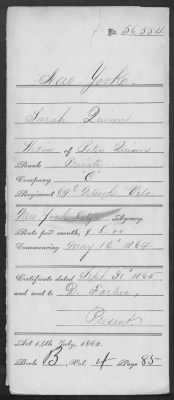 No. 56,554
New York
Sarah Quinn
Widow of Peter Quinn
Rank Private
Company "C"
Regiment 69" N York Vols.
New York City Agency.
Rate per month, $ 8.00
Commencing May 12" 1864
Certificate dated Sept 30" 1865
and sent to
Present
Act 14th July, 1862.
Book B Vol. 4 Page 85